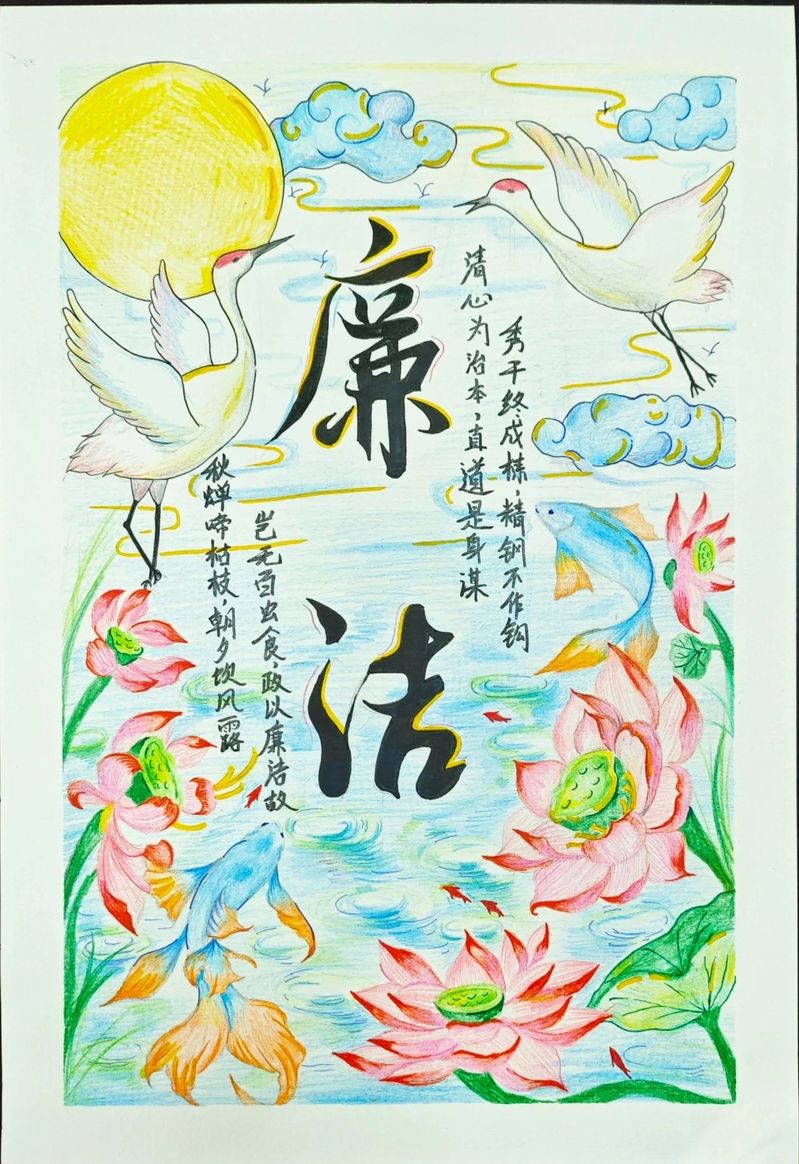 廉洁
清心为治本，直道是身谋
秀干终成栋，精钢不作钩
秋蝉啼枯枝朝夕饮风露
岂无百虫食，政以廉洁故